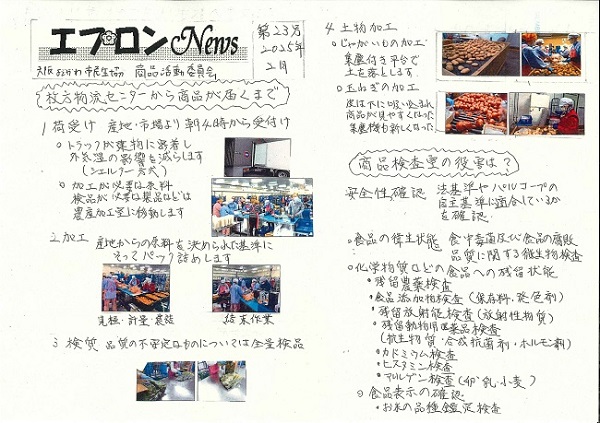 エプロン News
第23号
2025年
2月
大阪よどがわ市民生協 商品活動委員会
枚方物流センターから商品が届くまで
1 荷受け 産地・市場より朝4時から受付け
○トラックが建物に密着し
外気温の影響を減らします
(シェルター方式)
○加工が必要な原料
検品が必要な果品などは
農産加工室に移動します
2 加工 産地からの原料を決められた基準に
そってパック詰めします
見極・計量・袋詰
結束作業
3 検質 品質の不安定なものについては全量検品
4 土物加工
○じゃがいもの加工
集塵付き平台で
土を落とします
○玉ねぎの加工
皮は下に吸い込まれ
商品が見やすくなった
集塵機も新しくなった
商品検査室の役割は?
安全性確認 法基準やパルコープの
自主基準に適合しているか
を確認
○食品の衛生状態 食中毒菌及び食品の腐敗
品質に関する微生物検査
○化学物質などの食品への残留状態
・残留農薬検査
・食品添加物検査(保存料・発色剤)
・残留放射能検査(放射性物質)
・残留動物用医薬品検査
(抗生物質・合成抗菌剤・ホルモン剤)
・カドミウム検査
・ヒスタミン検査
・アレルゲン検査(卵・乳・小麦)
○食品表示の確認
・お米の品種鑑定検査